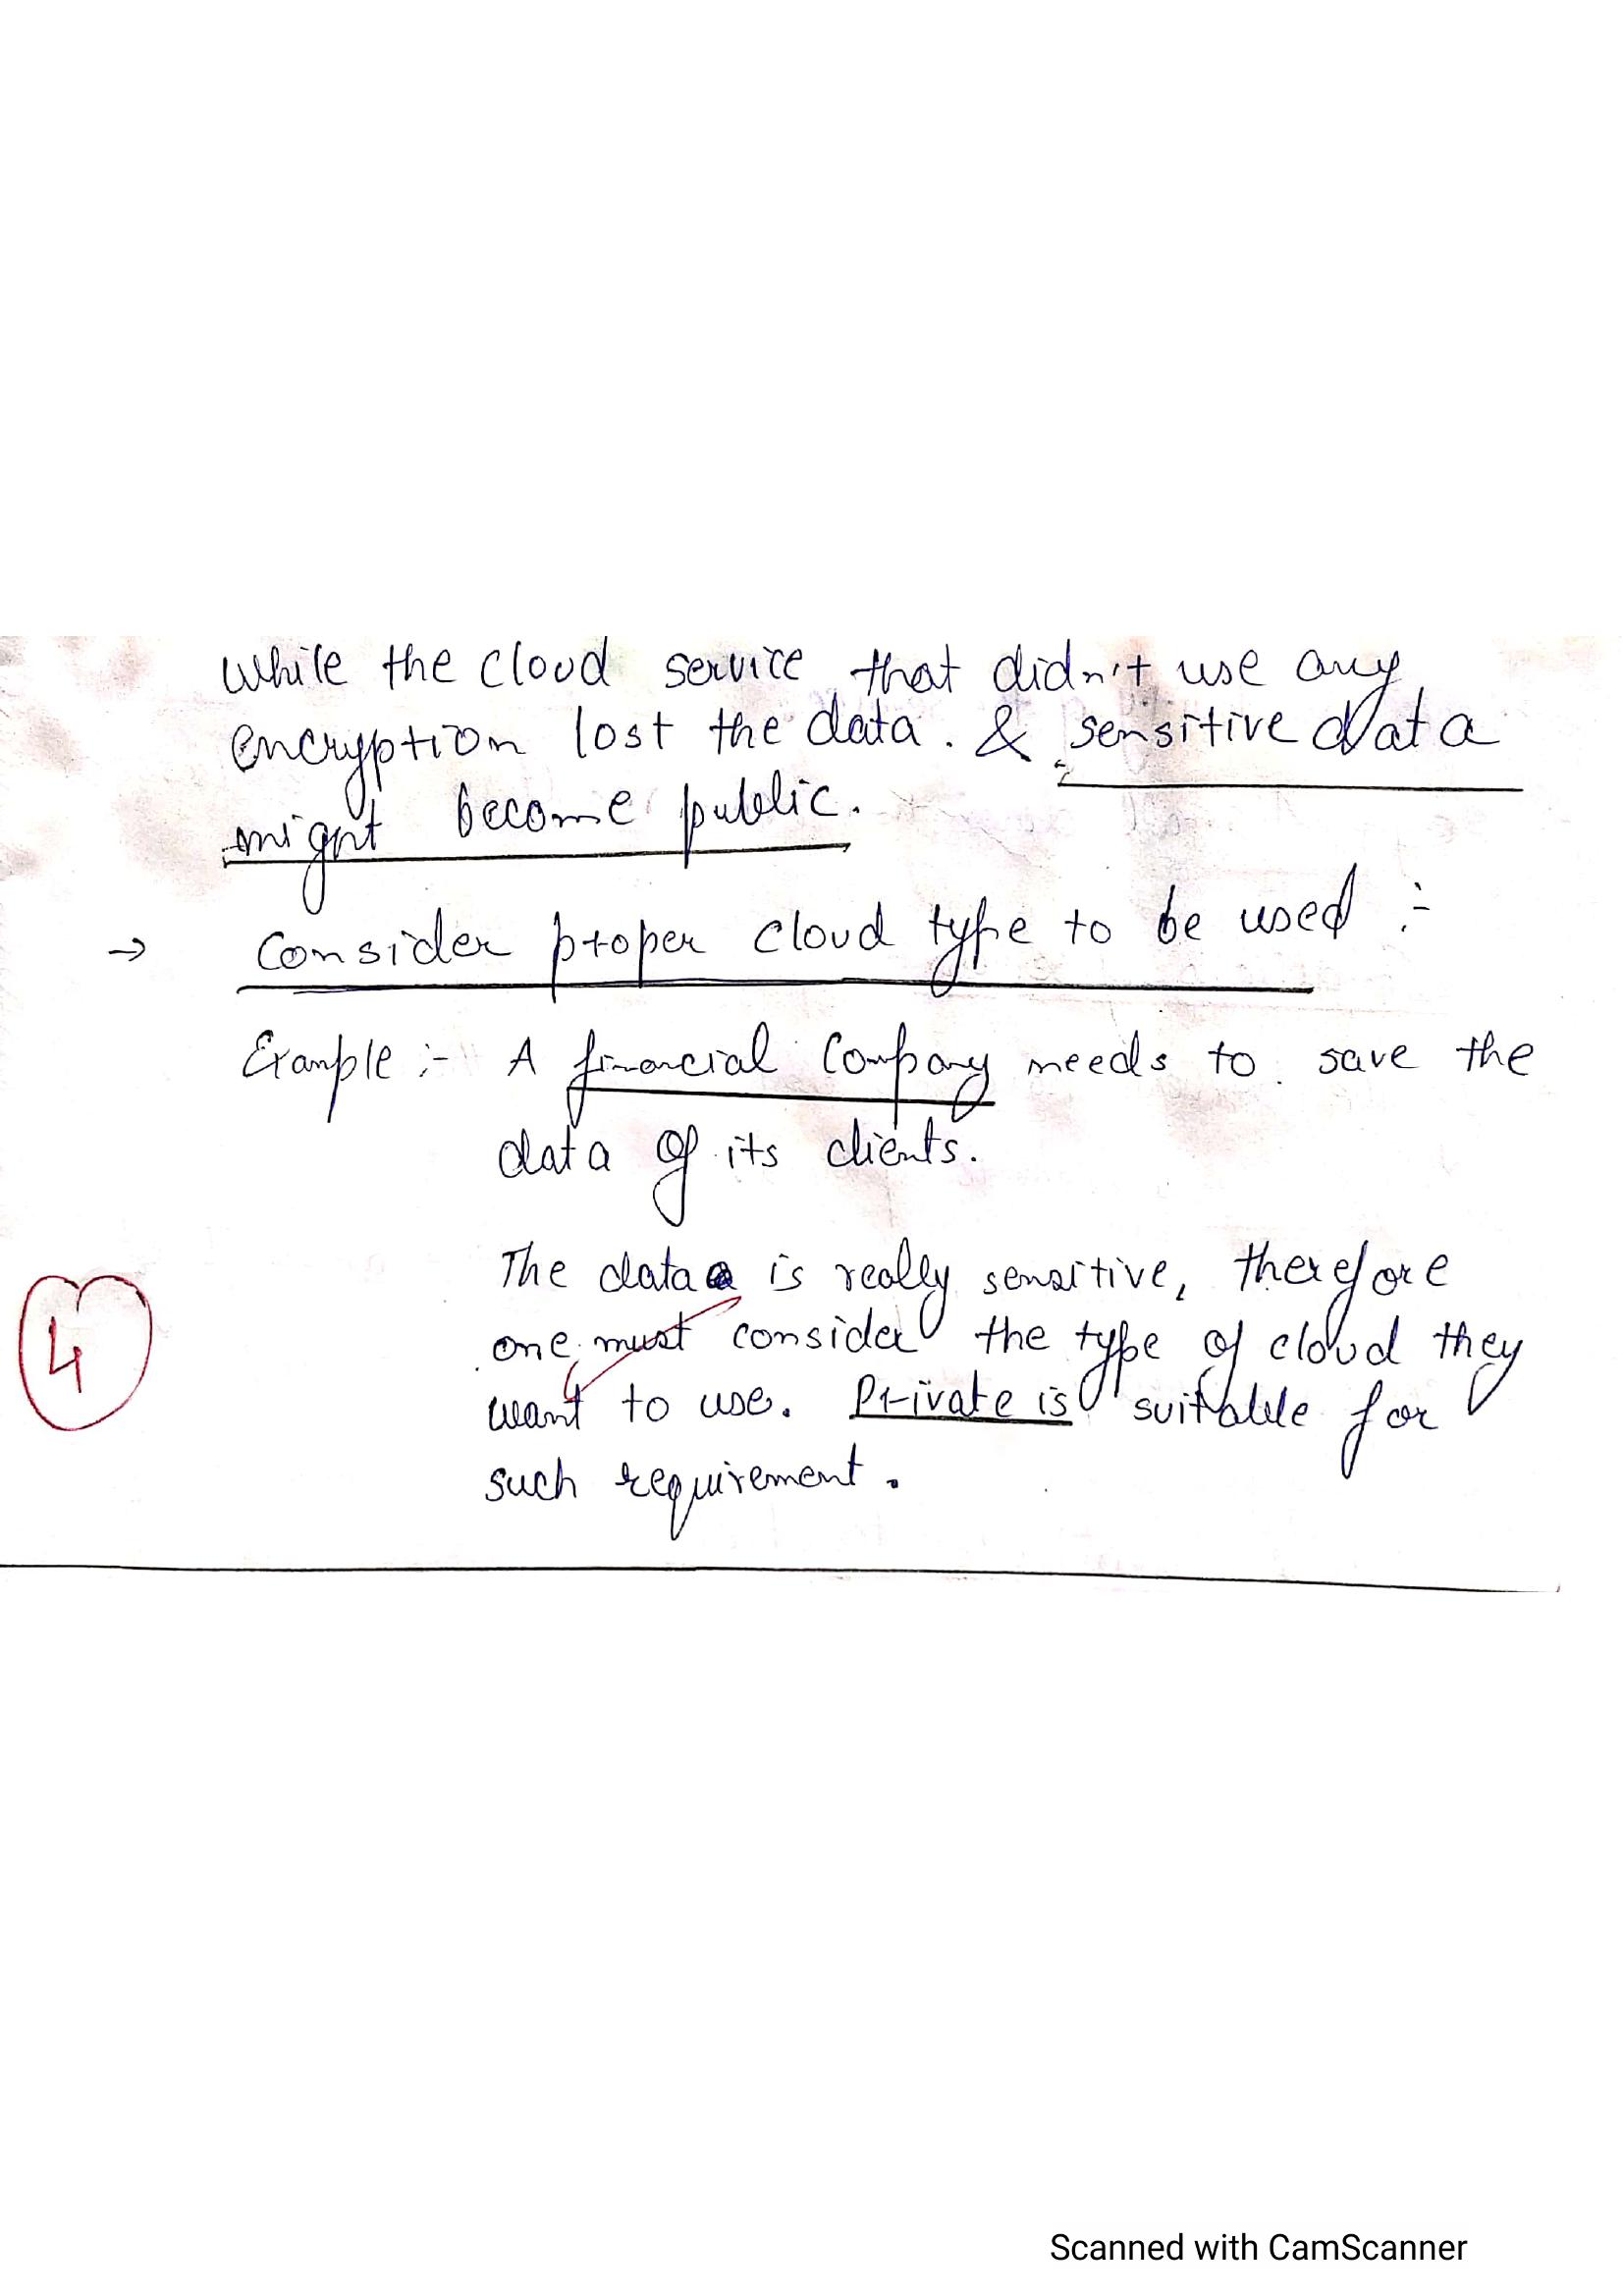 while the cloud service that didn't use any
encryption lost the data. & sensitive data
might become public.
→ Consider proper cloud type to be used :-
Example :- A financial Company needs to save the
data of its clients.
The data is really sensitive, therefore
one must consider the type of cloud they
4
want to use. Private is suitable for
such requirement.
Scanned with CamScanner